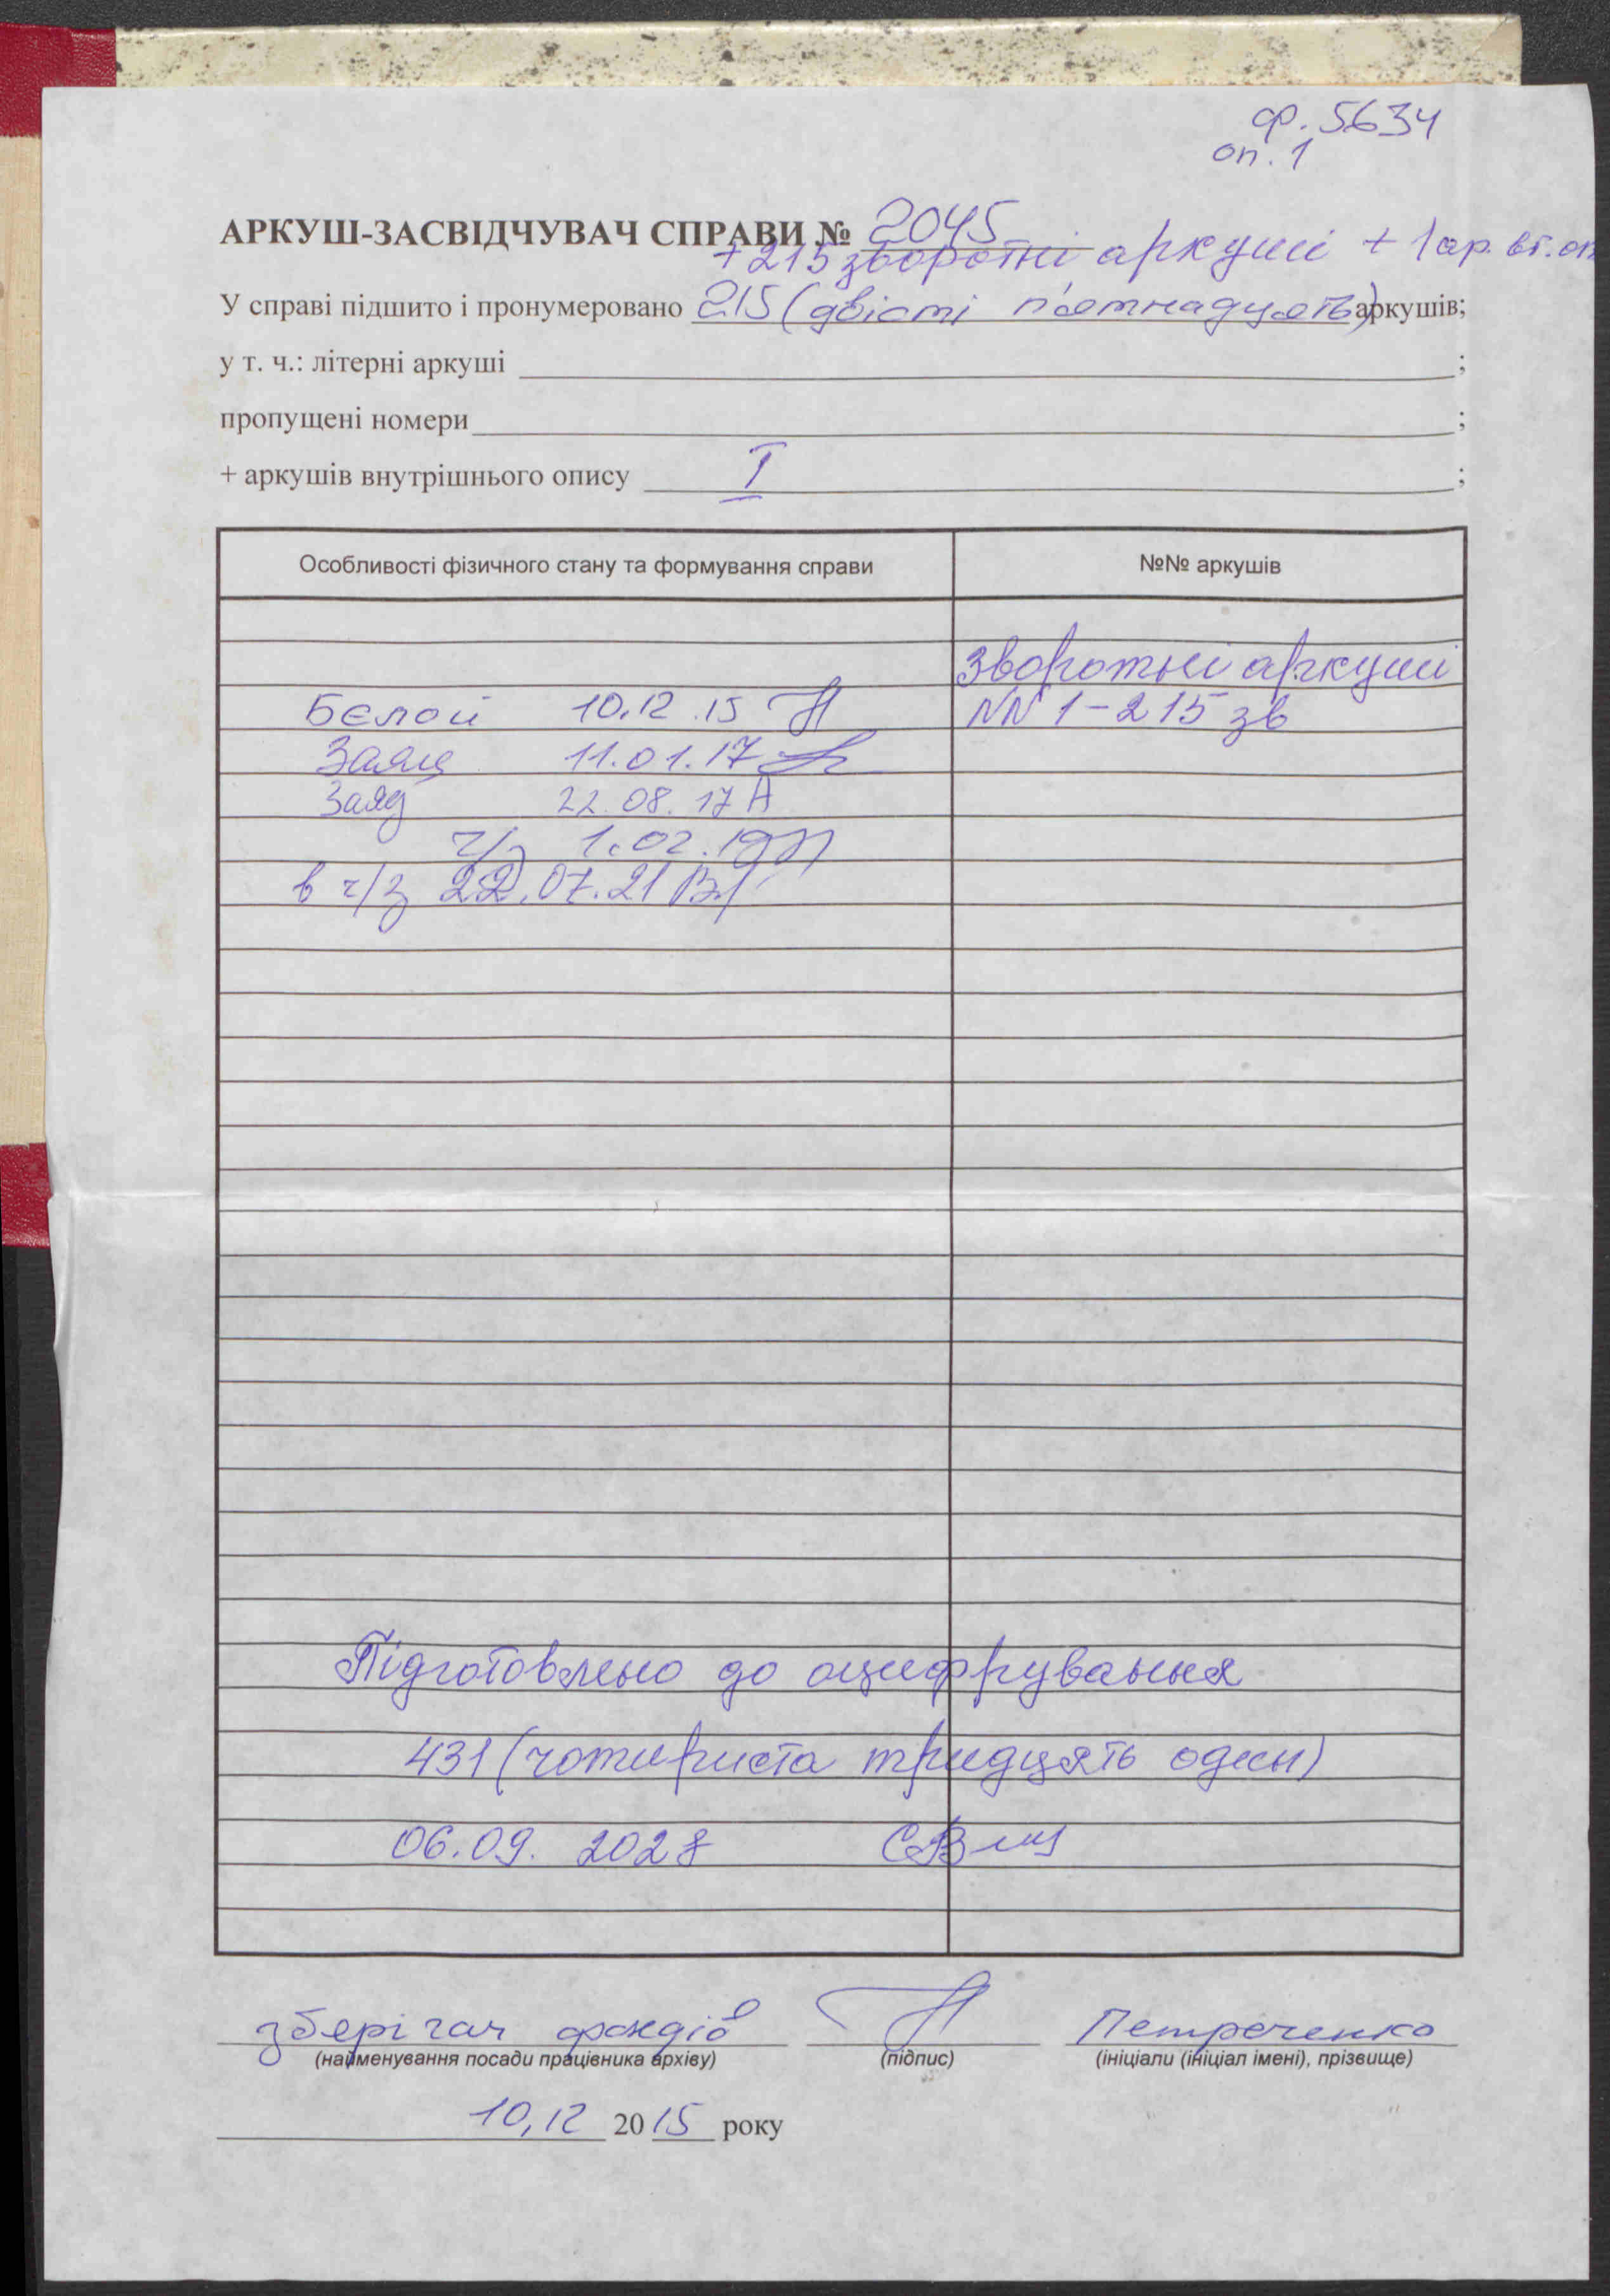 ф. 5634
оп. 1
АРКУШ-ЗАСВІДЧУВАЧ СПРАВИ № 2045
+ 215 зворотні аркуші + 1 ар. вт. оп
У справі підшито і пронумеровано 215 (двісті п'ятнадцять) аркушів;
у т. ч.: літерні аркуші ;
пропущені номери ;
+ аркушів внутрішнього опису I ;
Особливості фізичного стану та формування справи №№ аркушів
Зворотні аркуші
Бєлой 10.12.15 NN 1-215 зв
Заяц 11.01.17
Заяц 22.08.17
ч/з 1.02.19
в ч/з 22.07.21
Підготовлено до оцифрування
431 (чотириста тридцять один)
06.09.
зберігач фондів Петреченко
(найменування посади працівника архіву) (підпис) (ініціали (ініціал імені), прізвище)
10,12 2015 року